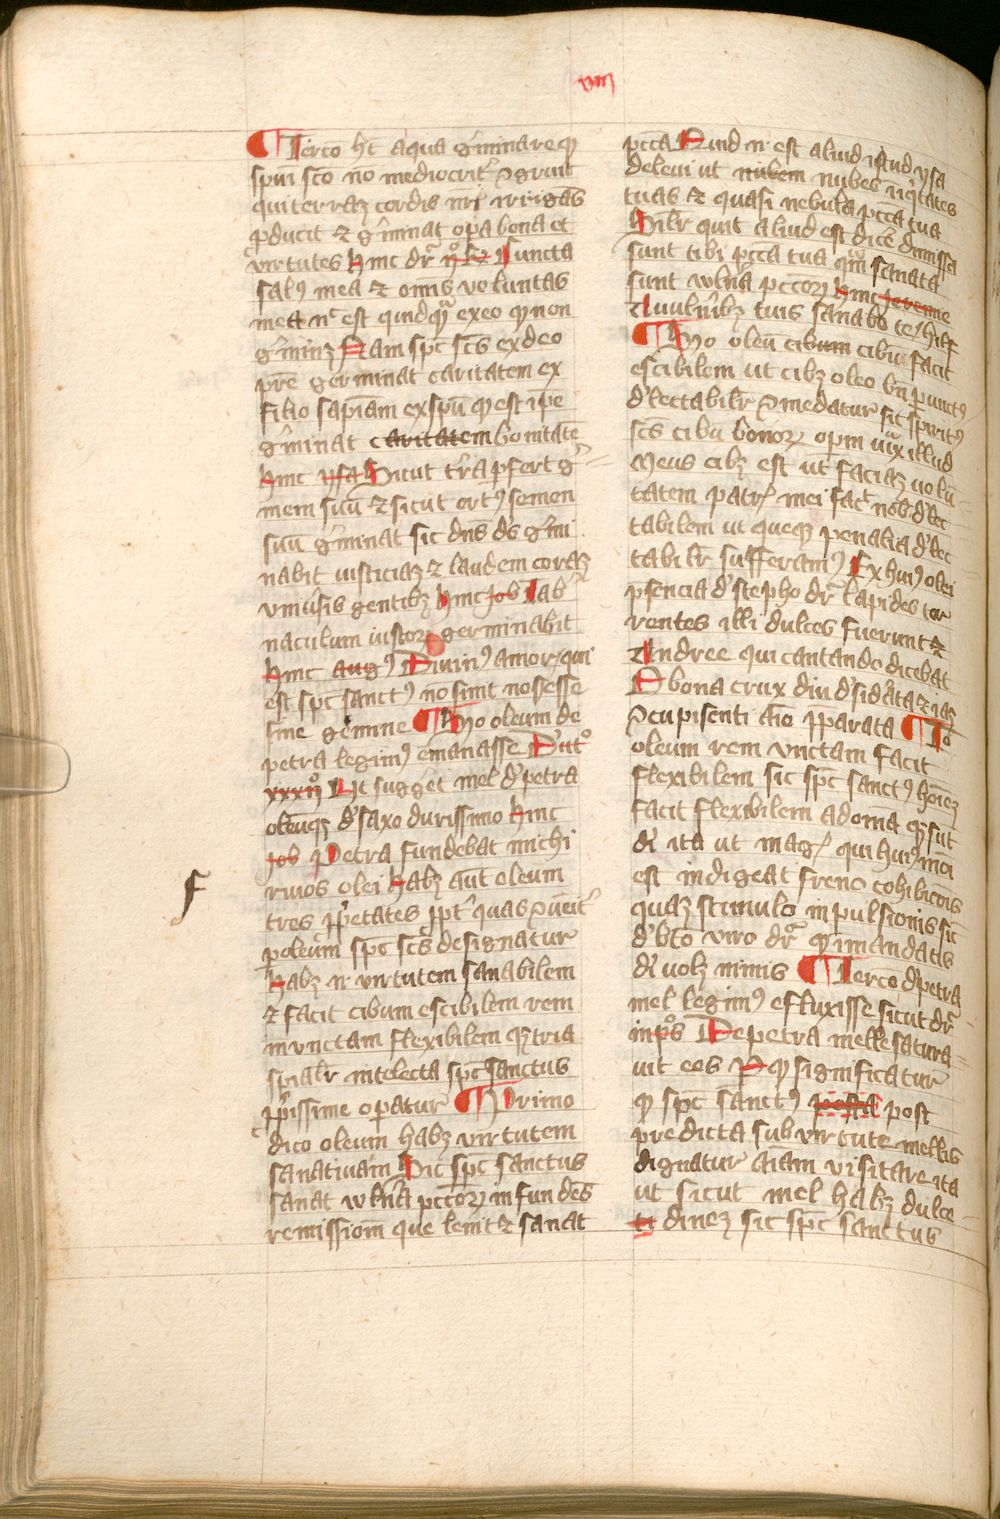 viij
¶ Tercio hꝫ aqua g̾minare qꝫ
spūi scō no mediocrit̾ ꝯgruit
qui terraꝫ cordis nr̄i irrigās
ꝓducit ⁊ g̾minat oꝑa bona et
virtutes hinc dr̄ Cuncta
salꝰ mea ⁊ omīs voluntas
mea n̄ est quidqͣꝫ ex eo qꝫ non
g̾minꝫ Nam spc̄ scs̄ ex deo
pr̄e germinat caritatem ex
filio sapīam ex spū qꝫ est ip̄e
g̾minat caritatem bonitatē
hinc ysa Sicut tr̄a ꝓfert g̾
mem suū ⁊ sicut ortꝰ semen
suū g̾minat sic dn̄s ds̄ g̾mi
nabit iusticiaꝫ ⁊ laudem coraꝫ
vniūsis gentibꝫ hinc Job Tab̾
naculum iustoꝝ germinabit
hinc augꝰ Diuinꝰ amor qui
est spc̄ sanctꝰ no sinit nos esse
sine g̾mine ¶ Scd̄o oleum de
petra legimꝰ emanasse Deut̾º
xxxijº Ut sugg̾et mel d̾ petra
oleūqꝫ d̾ saxo durissimo hinc
Job Petra fundebat michi
riuos olei habꝫ aūt oleum
f
tres ꝓp̾etates ꝓpt̾ quas ꝯueīt̾
ꝑ oleum spc̄ scs̄ designatur
habꝫ .n. virtutem sanabilem
⁊ facit cibum escibilem rem
inunctam flexibilem qꝫ tria
sp̄ialr̄ intelecta spc̄ sanctus
ꝓp̾issime operatur ¶ Primo
dico oleum habꝫ virtutem
sanatiuam Sic spc̄ sanctus
sanat wln̾a pcc̄oꝝ infundēs
remissiom̄ que lenit ⁊ sanat
pcc̄a Quid .n. est aliud istud ysa
deleui ut nubem nubes iniq̾tates
tuas ⁊ quasi nebula pcc̄a tua
Dilr̄ quit aliud est dicē dimissa
sunt tibi pcc̄a tua qͣm sanata
sunt wln̾a pcc̄oꝝ hinc Jeremie
A wln̾ibꝫ tuis sanabo te
¶ Scd̄o oleū cibum cibū facit
escibilem ut cibꝫ oleo bn̄ ꝑunctꝰ
d̾lectabilr̄ ꝯmedatur sic spiritꝰ
scs̄ cibū bonoꝝ operm̄ iux̄ illud
Meus cibꝫ est ut faciaꝫ uolū
tatem patr̾ mei fac̄ nob̾ d̾lec
tabilem ut queqꝫ penalia d̾lec
tabilr̄ sufferamꝰ Ex huiꝰ olei
p̄sencia d̾ stepho dr̄ lapides tor
rentes illi dulces fuerunt ⁊
Andree qui cantando dicebat
O bona crux diu d̾sid̾ata ⁊ iaꝫ
ꝯcupisenti aīo p̄parata ¶ Ter
oleum rem vnctam facit
flexibilem sic spc̄ sanctꝰ hoīeꝫ
facit flexibilem ad om̄a qꝫ sūt
di ita ut mag̾ qui huiꝰmoi
est indigeat freno cohibicoīs
quaꝫ stimulo inpulsionis sic
d̾ bt̄o viro dr̄ qꝫ in mandatis
di uolꝫ nimis ¶ Tercō d̾ petra
mel legimꝰ effluxisse sicut dr̄
in pºs De petra melle satura
uit eos P qꝫ significatur
qꝫ spc̄ sanctꝰ posta post
predicta sub virtute mellis
dignatur aīam visitare ita
ut sicut mel habꝫ dulce
ti dinez sic spc̄ sanctus